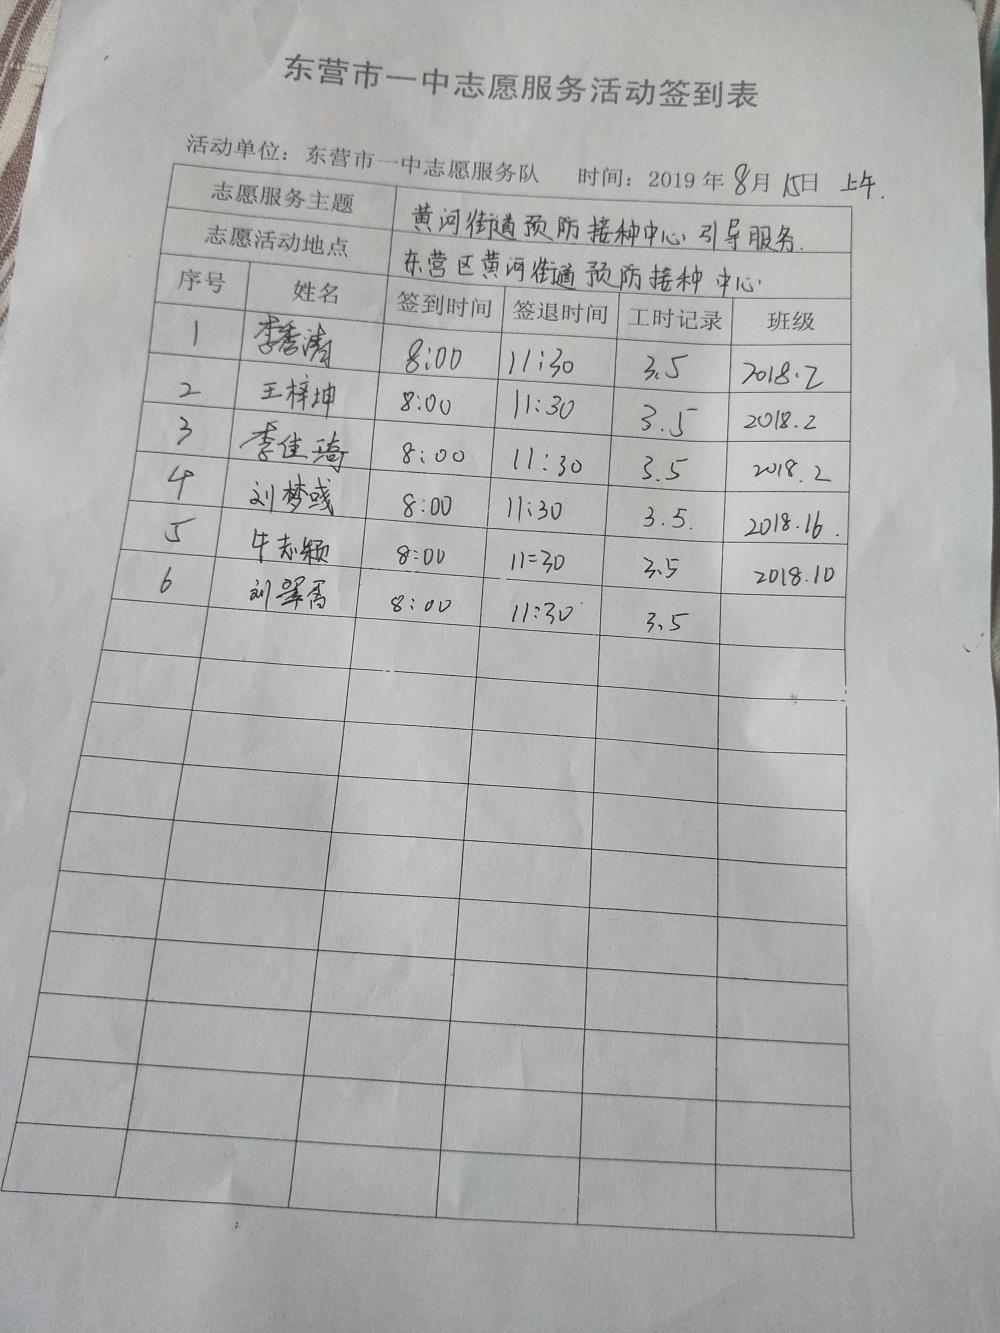 东营市一中志愿服务活动签到表
活动单位：东营市一中志愿服务队 时间：2019年8月15日 上午.
志愿服务主题 黄河街道预防接种中心引导服务.
志愿活动地点 东营区黄河街道预防接种中心.
序号 姓名 签到时间 签退时间 工时记录 班级
1 李秀清 8:00 11:30 3.5 2018.2
2 王梓坤 8:00 11:30 3.5 2018.2
3 李佳琦 8:00 11:30 3.5 2018.2
4 刘梦彧 8:00 11:30 3.5. 2018.16.
5 牛志颖 8:00 11:30 3.5 2018.10
6 刘 8:00 11:30 3.5